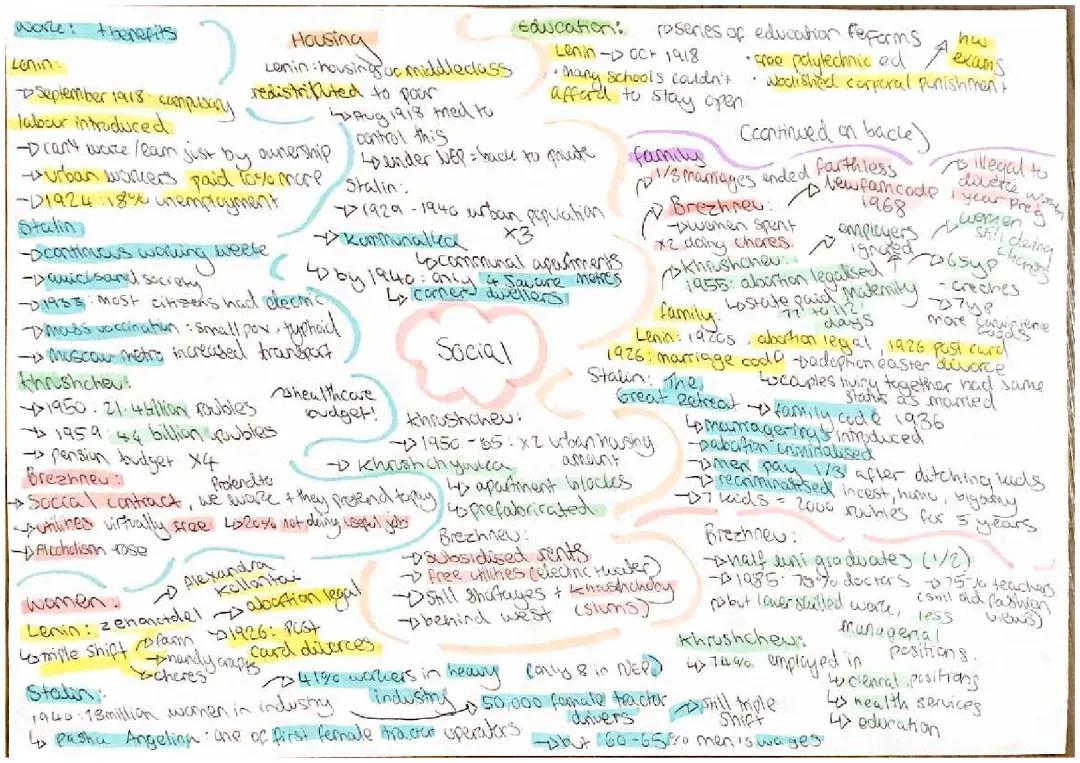 Work: + benefits
Lenin:
→ September 1918: compulsory
labour introduced
→ can't work/earn just by ownership
→ urban workers paid 10% more
→ 1924: 18% unemployment
Stalin
→ continuous working week
→ quicksand society
→ 1933: most citizens had electric
→ mass vaccination: small pox, typhoid
→ Moscow metro increased transport
Khrushchev:
→ healthcare
budget!
→ 1950: 21.4 billion roubles
→ 1959: 44 billion roubles
→ pension budget x4
Brezhnev:
→ Social contract, we work + they pretend to pay
→ utilities virtually free ↳ 20% not doing useful job
→ Alcoholism rose
Housing
Lenin: housing of middle class
redistributed to poor
↳ Aug 1918 tried to
control this
↳ under NEP = back to private
Stalin:
→ 1929 - 1940 urban population
x3
→ Kommunalka
↳ communal apartments
↳ by 1940: only 4 square metres
↳ corner dwellers
Social
Khrushchev:
→ 1950 - 65: x2 urban housing
amount
→ Khrushchyovka
↳ apartment blocks
↳ prefabricated
Brezhnev:
→ subsidised rents
→ free utilities (electric + water)
→ still shortages + khrushchoby
(slums)
→ behind west
Education: → series of education reforms
Lenin → Oct 1918
• many schools couldn't
afford to stay open
• free polytechnic ed
• abolished corporal punishment
↗ hw
exams
(continued on back)
family
→ 1/3 marriages ended farthless
Brezhnev:
→ women spent
x2 doing chores
→ New fam code
1968
→ illegal to
divorce women
1 year preg
→ women
still doing
chores
Khrushchev:
1955: abortion legalised
↳ state paid maternity
77 to 112
days
employers
ignored
→ 65yp
- creches
→ 7yp
more convenience
foods
family:
Lenin: 1920s, abortion legal, 1926 post card
1926: marriage code → adoption easter divorce
↳ couples living together had same
status as married
Stalin: The
Great Retreat → family code 1936
↳ marriage rings introduced
→ abortion criminalised
→ men pay 1/3 after ditching kids
→ recriminalised incest, homo, bigamy
→ 7 kids = 2000 roubles for 5 years
Women:
→ Alexandra
Kollontai
Lenin: zhenotdel → abortion legal
↳ triple shift → farm
→ handy crafts
→ chores
→ 1926: Post
card divorces
Stalin:
1940: 13 million women in industry
→ 41% workers in heavy
industry
(only 8 in NEP)
→ 50,000 female tractor
drivers
→ still triple
shift
↳ Pasha Angelina: one of first female tractor operators
→ but 60-65% men's wages
Brezhnev:
→ half uni graduates (1/2)
→ 1985: 70% doctors → 75% teachers
(still old fashion
views)
→ but lower skilled work, less
managerial
positions.
Khrushchev:
↳ 74% employed in
↳ clerical positions
↳ health services
↳ education